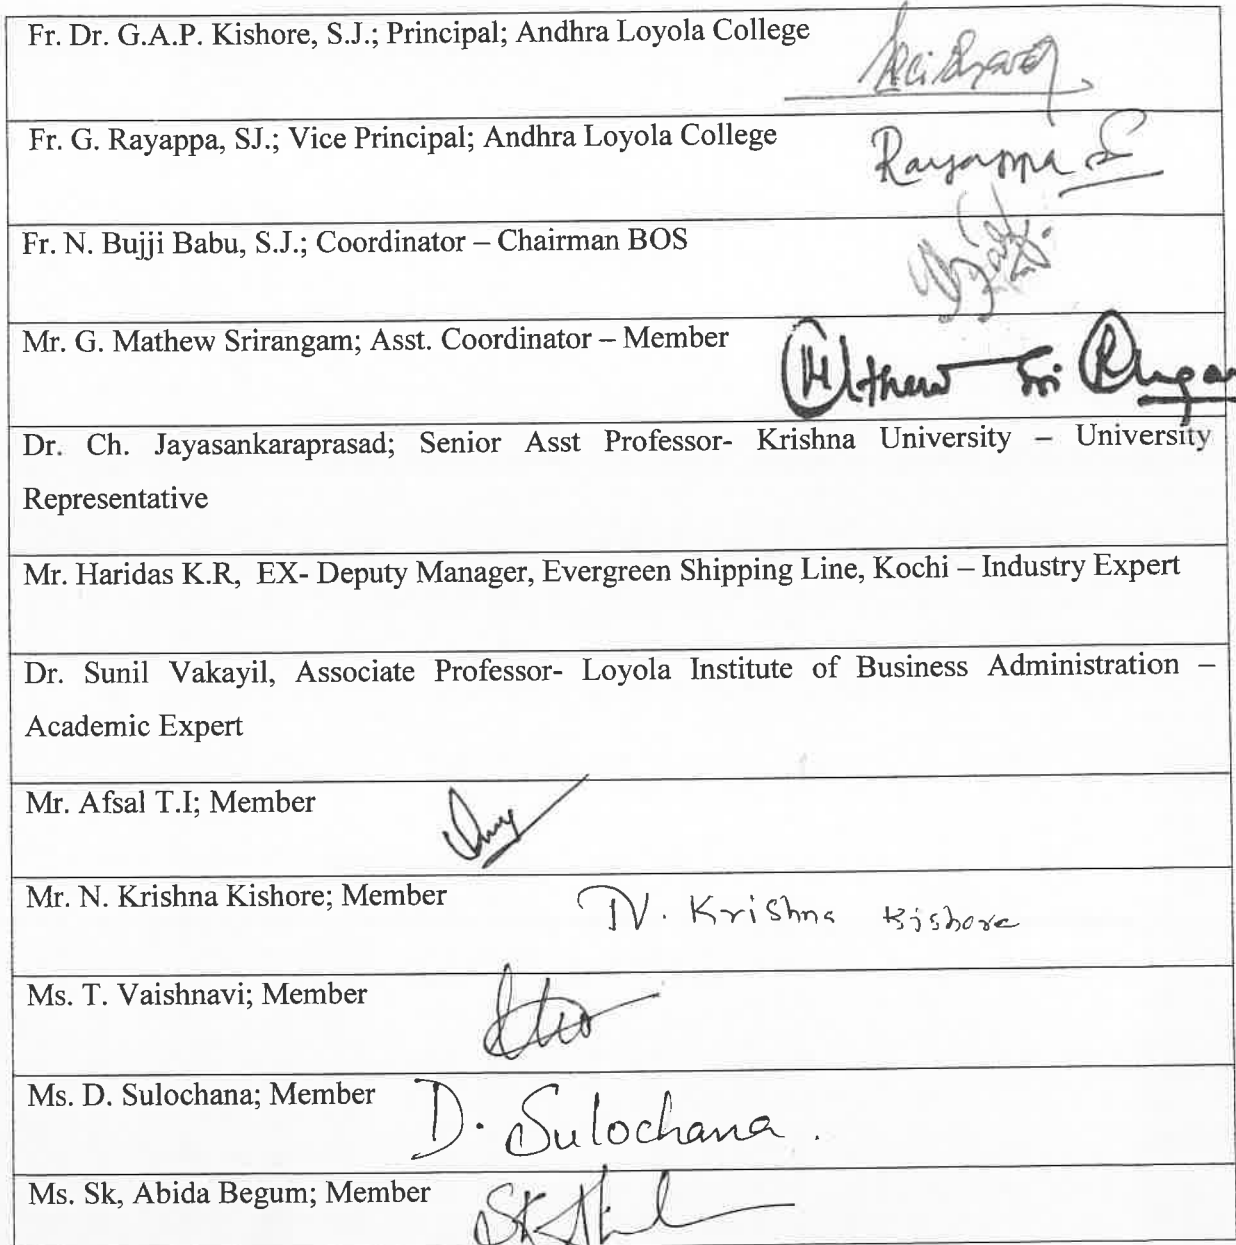 Fr. Dr. G.A.P. Kishore, S.J.; Principal; Andhra Loyola College
Fr. G. Rayappa, SJ.; Vice Principal; Andhra Loyola College
Rayappa S
Fr. N. Bujji Babu, S.J.; Coordinator – Chairman BOS
Mr. G. Mathew Srirangam; Asst. Coordinator – Member
Dr. Ch. Jayasankaraprasad; Senior Asst Professor- Krishna University – University
Representative
Mr. Haridas K.R, EX- Deputy Manager, Evergreen Shipping Line, Kochi – Industry Expert
Dr. Sunil Vakayil, Associate Professor- Loyola Institute of Business Administration –
Academic Expert
Mr. Afsal T.I; Member
Mr. N. Krishna Kishore; Member
N. Krishna Kishore
Ms. T. Vaishnavi; Member
Ms. D. Sulochana; Member
D. Sulochana.
Ms. Sk, Abida Begum; Member